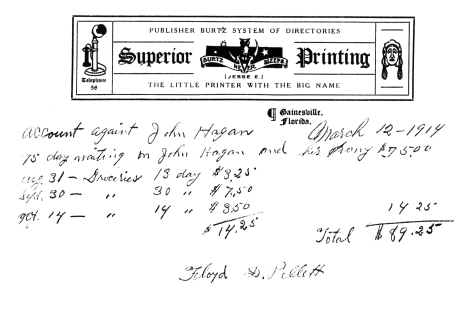 PUBLISHER BURTZ SYSTEM OF DIRECTORIES
Superior Printing
BURTZ NEVER SLEEPS
[JESSE E.]
Telephone
58
THE LITTLE PRINTER WITH THE BIG NAME
¶ Gainesville,
Florida,
account against John Hagan March 12-1914
75 day waiting on John Hagan and his Pony $75.00
aug 31 - Groceries 13 day $3.25
Sept. 30 - " 30 " $7.50
oct. 14 - " 14 " $3.50
$14.25
14 25
Total $89.25
Floyd D. Pillett